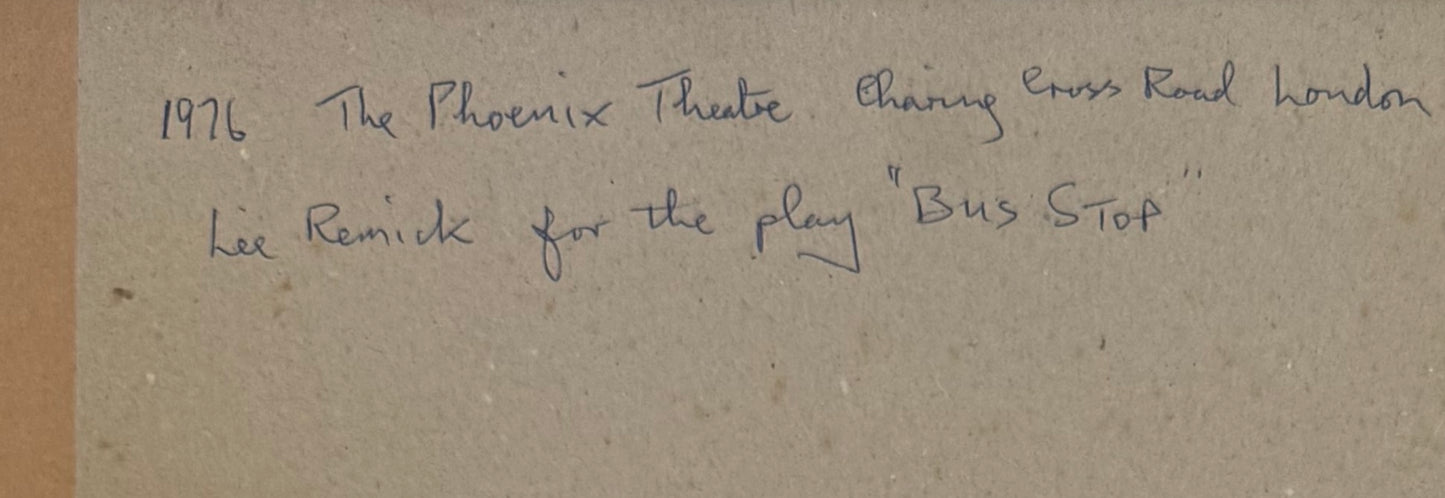 1976 The Phoenix Theatre Charing Cross Road London
Lee Remick for the play "Bus STOP"